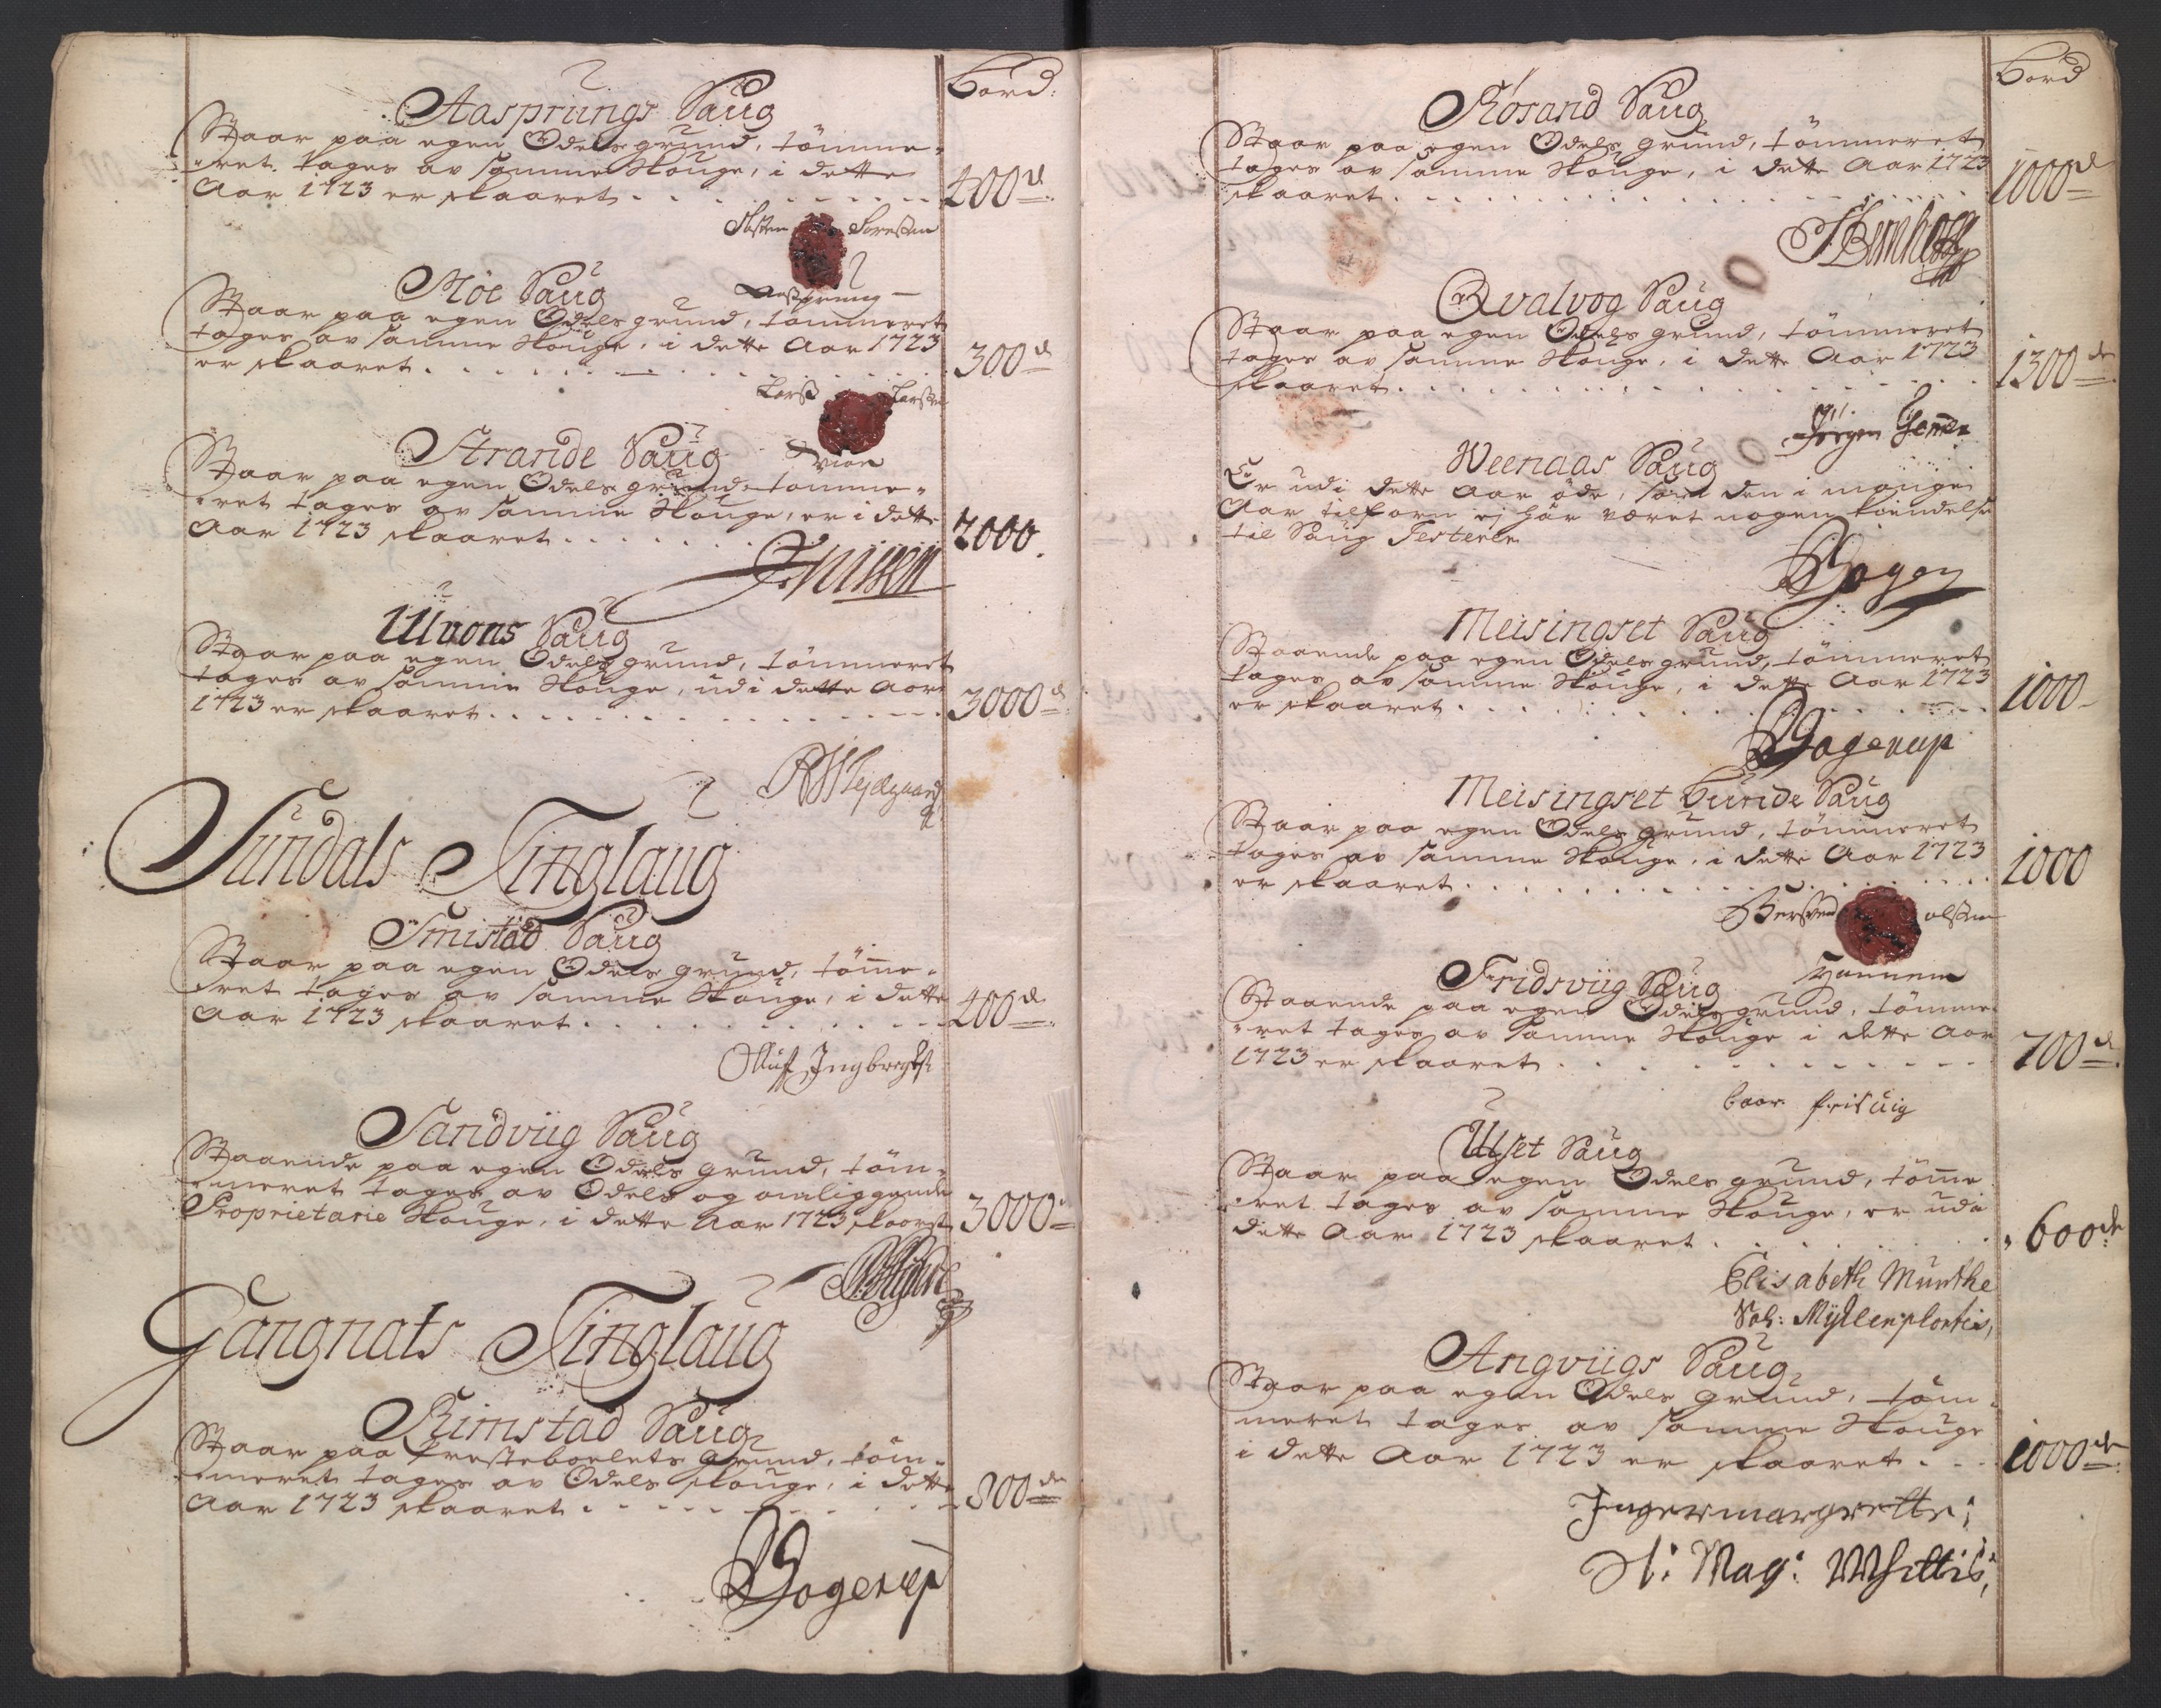 Bord.
Aasprungs Saug
Staar paa egen Odels grund, tömme-
ret tages av samme Skouge, i dette
Aar 1723 er skaaret 400 d
Sorensen
Aasprung
Moe Saug
Staar paa egen Odels grund, tömmeret
tages av samme Skouge, i dette Aar 1723
er skaaret 300 d
Larss Larssen
Strande Saug
Staar paa egen Odels grund tömme-
ret tages av samme Skouge, er i dette
Aar 1723 skaaret 2000.
Ulvons Saug
Staar paa egen Odels grund, tömmeret
tages av samme Skouge, udi dette Aar
1723 er skaaret 3000 d
Sundals Tinglaug
Smistad Saug
Staar paa egen Odels grund, tömme-
ret tages av samme Skouge, i dette
Aar 1723 skaaret 400 d
Oluf Ingbregts
Sandviig Saug
Staaende paa egen Odels grund, töm-
meret tages av Odels og omliggende
Proprietarie Skouge, i dette Aar 1723 skaaret 3000 d
Gangnats Tinglaug
Rimstad Saug
Staar paa Prestebolets Grund, töm-
meret tages av Odels skouge, i dette
Aar 1723 skaaret 800 de
Bogerup
Bord
Røsand Saug
Staar paa egen Odels grund, tömmeret
tages av samme Skouge, i dette Aar 1723
skaaret 1000 d
Qvalvog Saug
Staar paa egen Odels grund, tömmeret
tages av samme Skouge, i dette Aar 1723
skaaret 1300 de
Jörgen
Weenaas Saug
Er udi dette Aar öde, som den i mange
Aar tilforn ej har været nogen kiendelse
til Saug Festeren
Meisingset Saug
Staaende paa egen Odels grund, tömmeret
tages av samme Skouge, i dette Aar 1723
er skaaret 1000
Bogerup
Meisingset Bunde Saug
Staar paa egen Odels grund, tömmeret
tages av samme Skouge, i dette Aar 1723
er skaaret 1000
olsen
Fridsviig Saug
Staaende paa egen Odels grund, tömme-
ret tages av samme Skouge i dette Aar
1723 er skaaret 700 d
baar frisuig
Ulset Saug
Staar paa egen Odels grund, tömme
ret tages av samme Skouge, er udi
dette Aar 1723 skaaret 600 de
Elisabeth Munthe
Sal: Mÿllenphortis,
Angviigs Saug
Staar paa egen Odels grund, töm-
meret tages av samme Skouge
i dette Aar 1723 er skaaret 1000 de
Ingermargrette;
Mag: